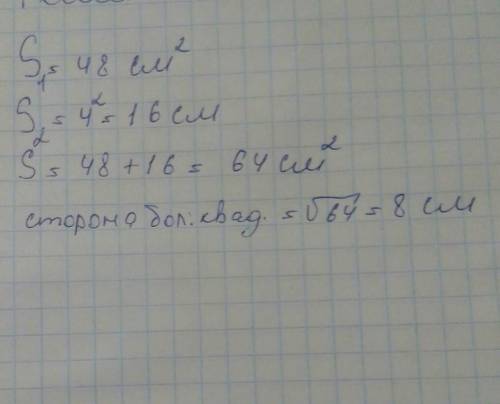 S₁ = 48 см²
S₂ = 4² = 16 см
S = 48 + 16 = 64 см²
сторона бол. квад. = √64 = 8 см